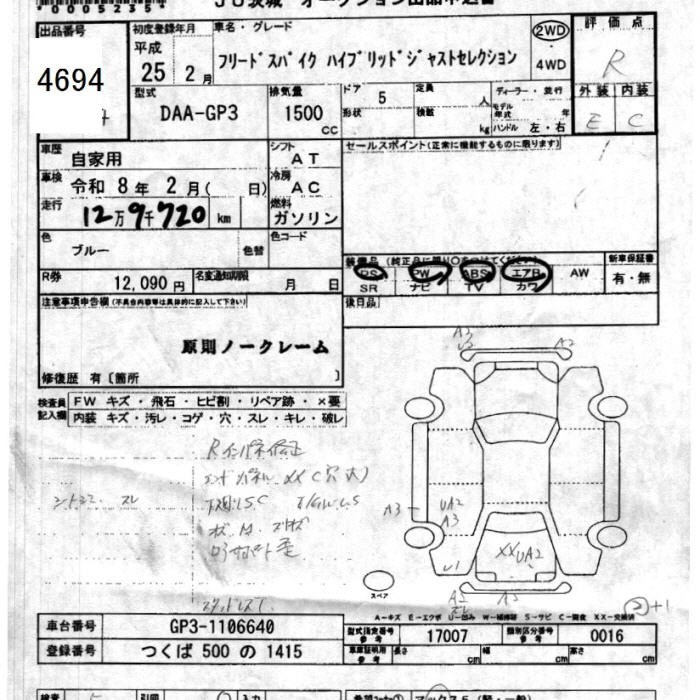 00052351
JU茨城 オークション出品申込書
出品番号
4694
初度登録年月
平成
25 2月
車名・グレード
フリードスパイク ハイブリッドジャストセレクション
2WD
4WD
評価点
R
型式
DAA-GP3
排気量
1500
CC
ドア
5
形状
定員
人
積載
kg
ディーラー・並行
モデル年式 年
ハンドル 左・右
外装 内装
E C
車歴
自家用
シフト
AT
車検
令和 8年 2月( 日)
冷房
AC
走行
12万9千720 km
燃料
ガソリン
色
ブルー
色替
色コード
セールスポイント(正常に機能するものに限ります)
装備品 (純正品に限り○をつけてください)
PS PW ABS エアB AW
SR ナビ TV カワ
新車保証書
有・無
後日品
R券
12,090円
名変通知期限
月 日
注意事項申告欄(不具合内容等は具体的に記入して下さい)
原則ノークレーム
修復歴 有〔箇所 〕
検査員記入欄
FW キズ・飛石・ヒビ割・リペア跡・×要
内装 キズ・汚レ・コゲ・穴・スレ・キレ・破レ
A3
A2
A3
UA2
A3
XX UA2
U1
スペア
A3
②+1
A-キズ E-エクボ U-凹み W-補修跡 S-サビ C-腐食 XX-交換済
車台番号
GP3-1106640
登録番号
つくば 500 の 1415
型式指定番号
参考
17007
類別区分番号
参考
0016
車庫証明用
参考
長さ cm
幅 cm
高さ cm